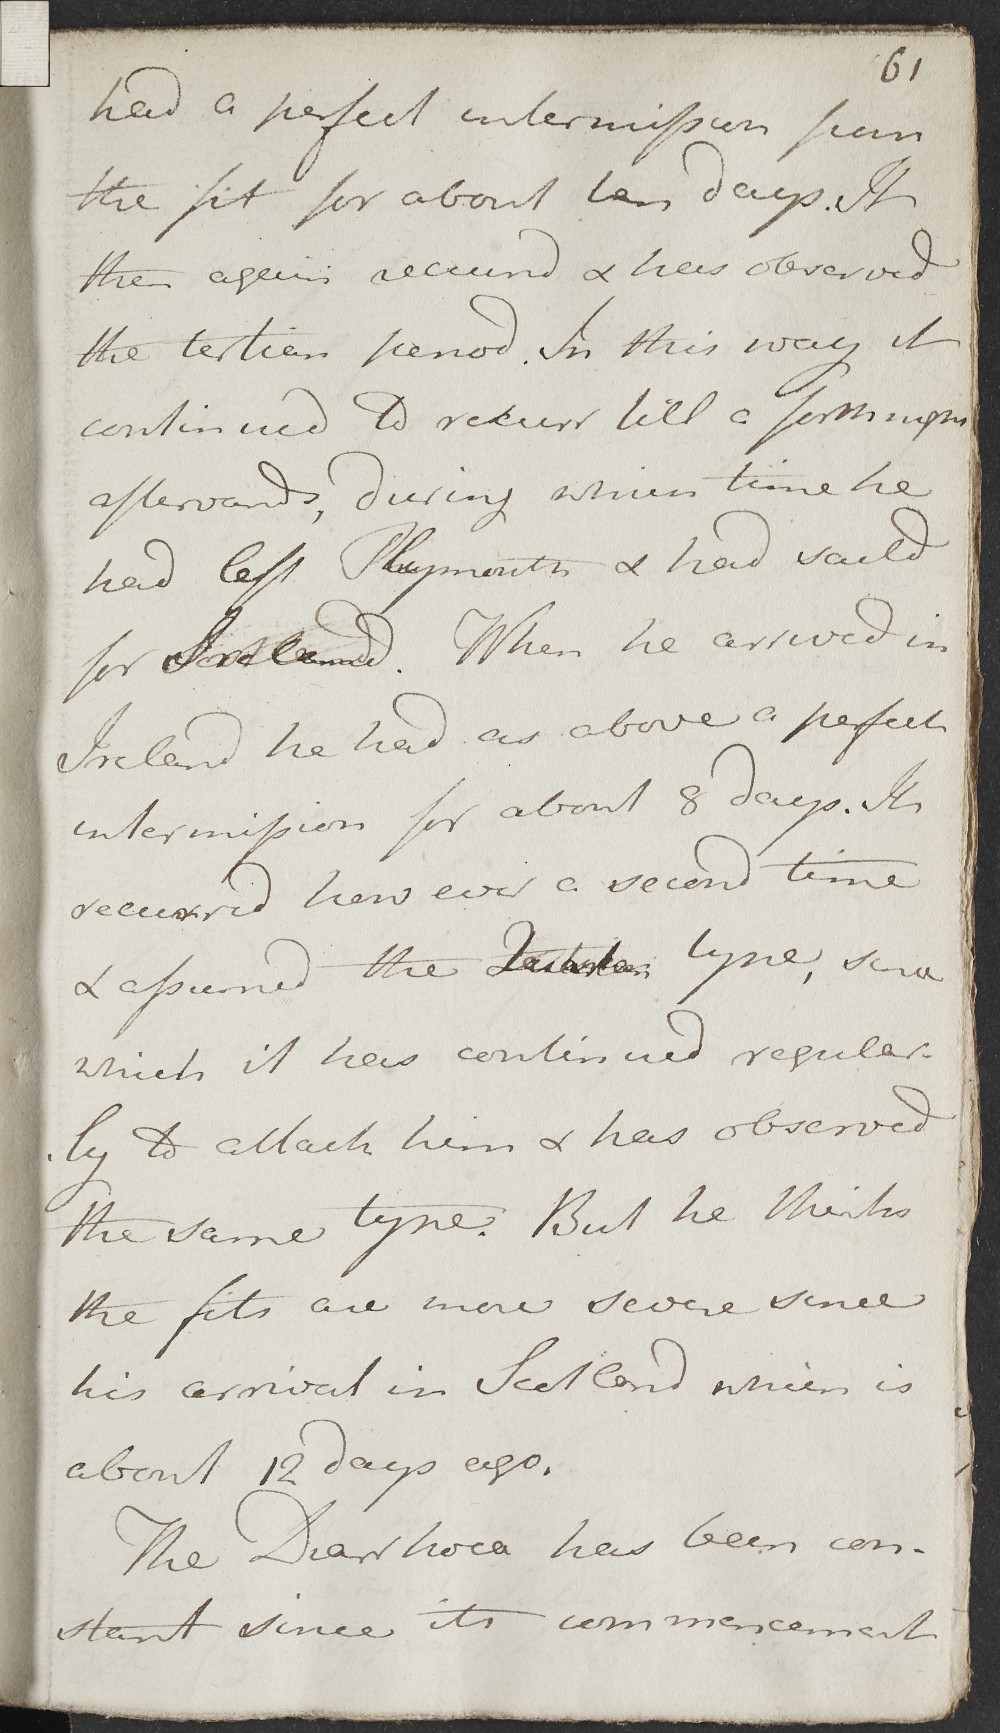 61
had a perfect intermission from
the fit for about ten days. It
then again recurred & has observed
the tertian period. In this way it
continued to recurr till a fortnight
afterwards, during which time he
had left Plymouth & had saild
for Ireland. When he arrived in
Ireland he had as above a perfect
intermission for about 8 days. It
recurrid however a second time
& assumed the type, since
which it has continued regular-
ly to attack him & has observed
the same type. But he thinks
the fits are more severe since
his arrival in Scotland which is
about 12 days ago.
The Diarrhoea has been con-
stant since its commencement